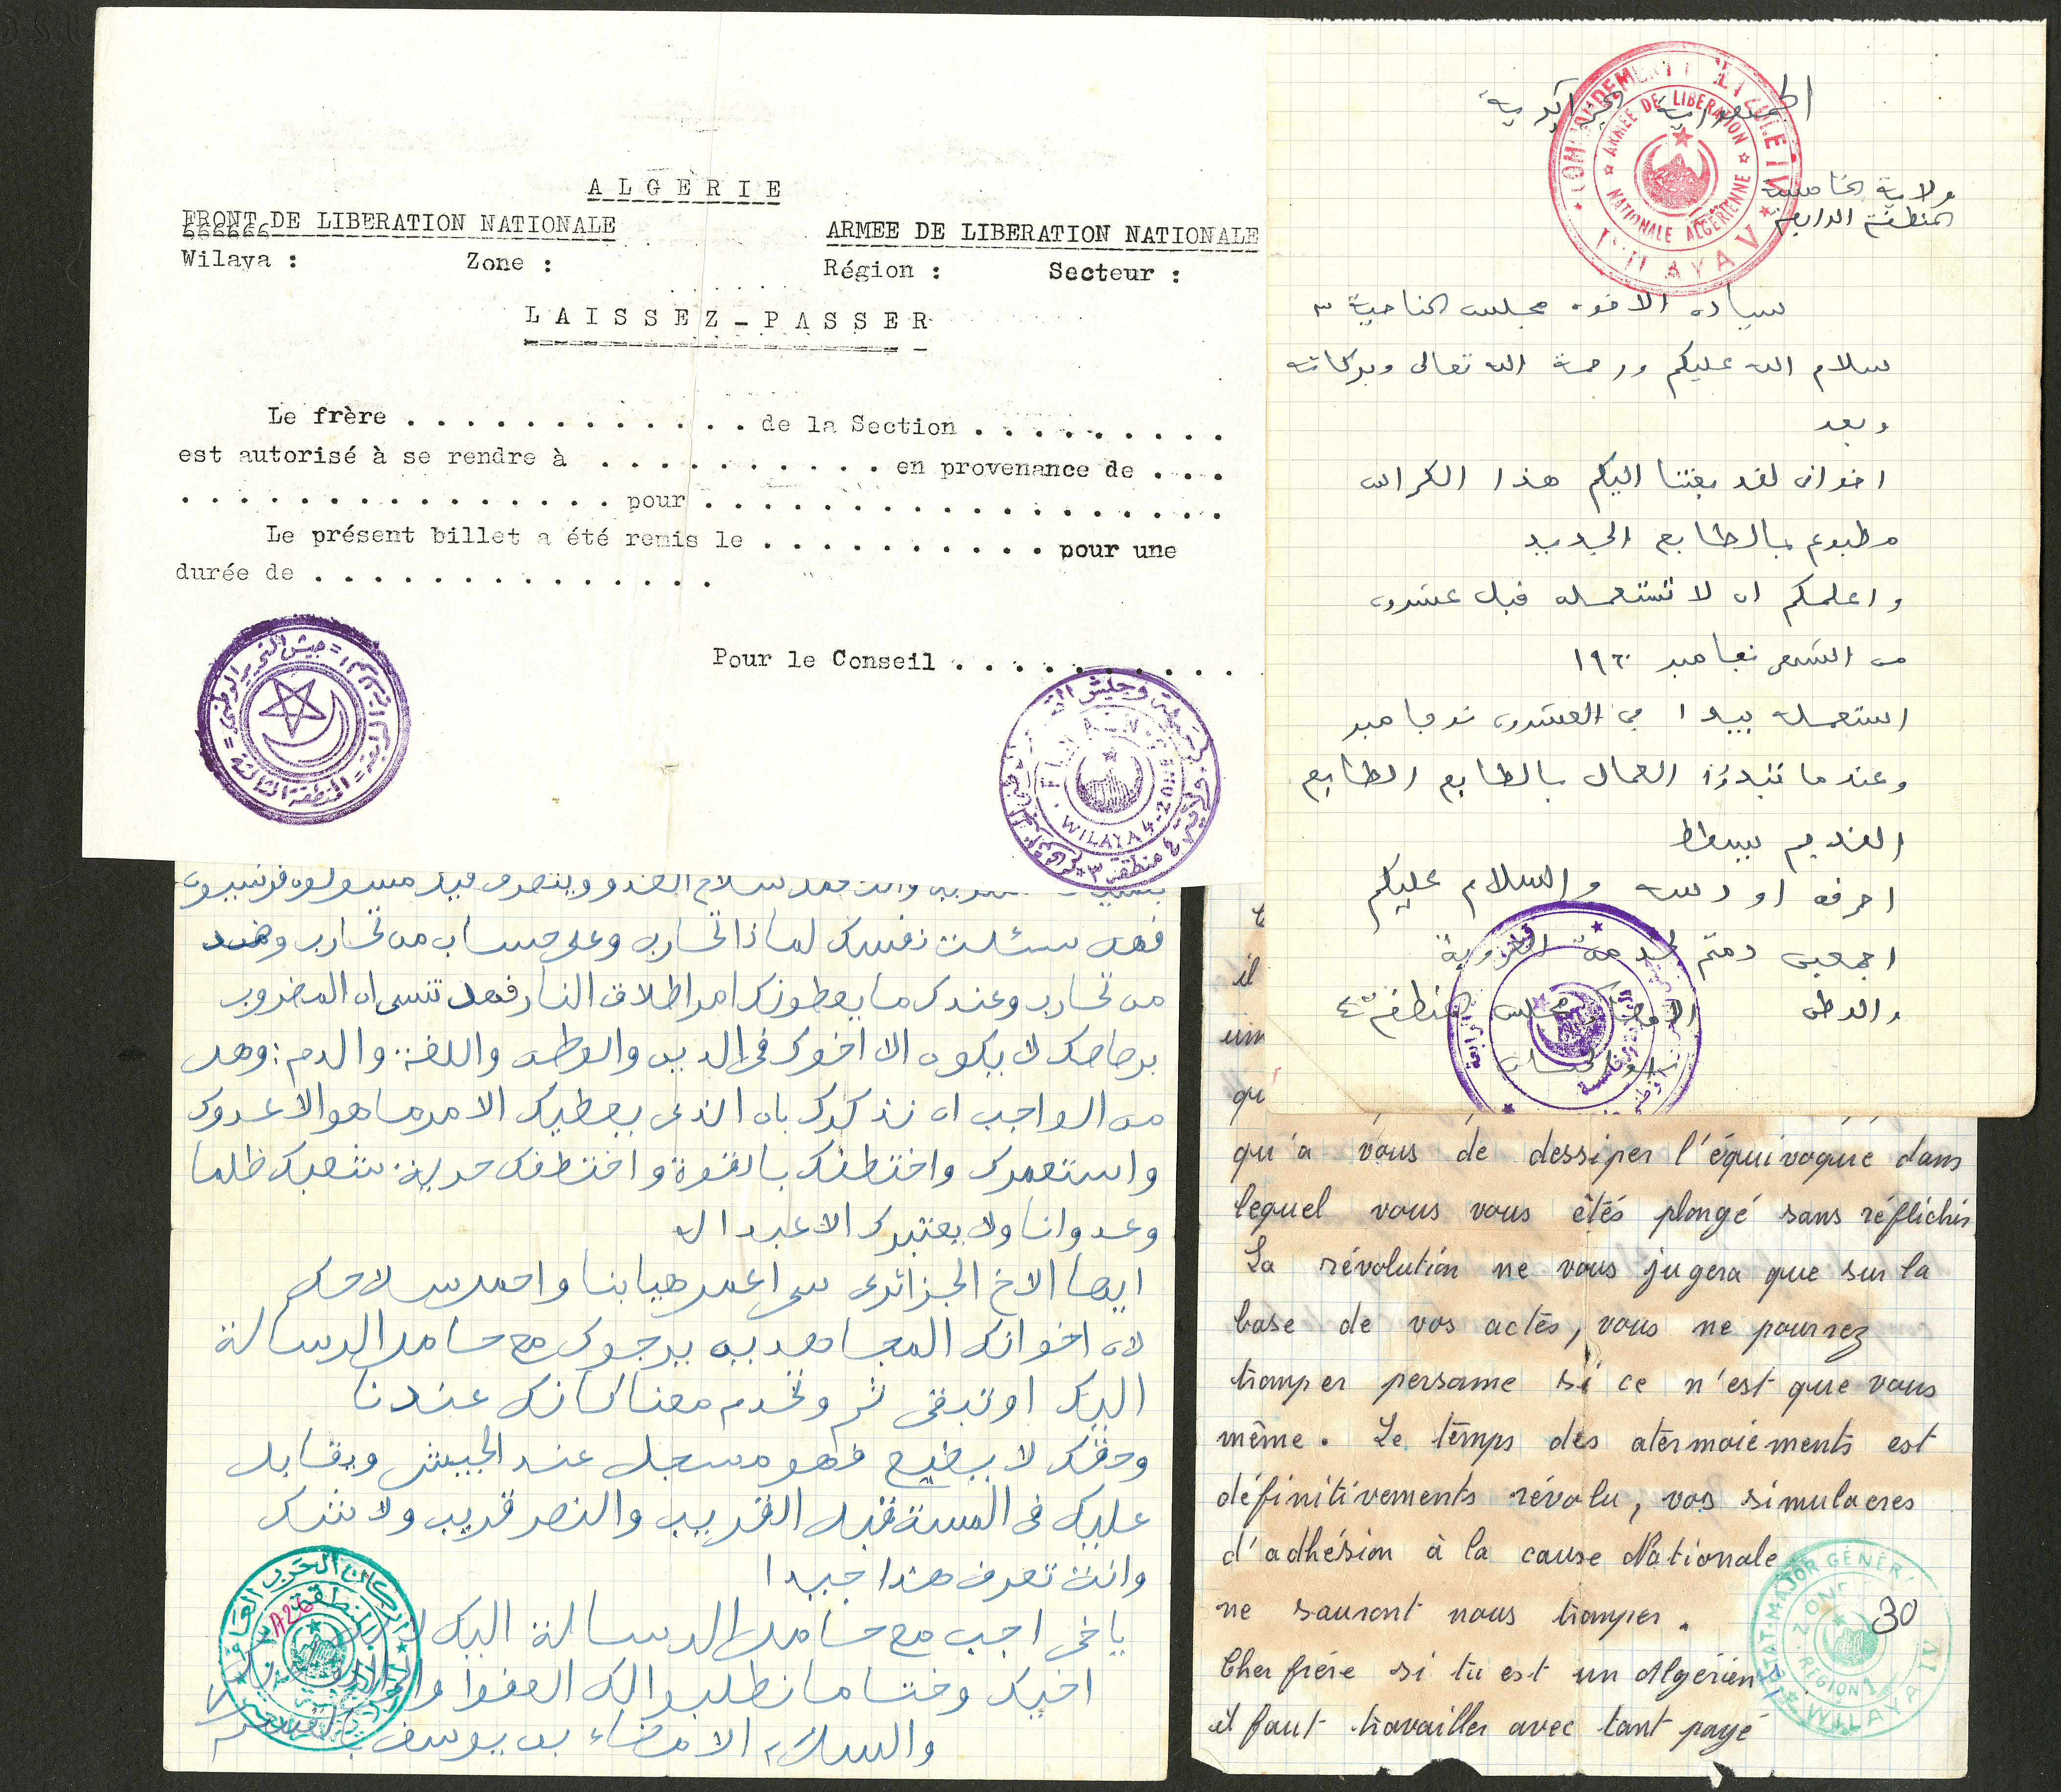 ALGERIE
FRONT DE LIBERATION NATIONALE
ARMEE DE LIBERATION NATIONALE
Wilaya : Zone : Région : Secteur :
LAISSEZ-PASSER
Le frère . . . . . . . . . . . . . de la Section . . . . . . . . .
est autorisé à se rendre à . . . . . . . . . . . en provenance de . . .
. . . . . . . . . . . . . . . . . pour . . . . . . . . . . . . . . . . . . .
Le présent billet a été remis le . . . . . . . . . . . pour une
durée de . . . . . . . . . . . . . . .
Pour le Conseil . . . . . . . . . . .
جيش التحرير الوطني
المنطقة الثالثة
WILAYA 4 - ZONE
منطقة ٣
الجمهورية الجزائرية
ARMEE DE LIBERATION
NATIONALE ALGERIENNE
WILAYA V
ولاية الخامسة
المنطقة الرابعة
سيادة الاخوة مجلس الناحية ٣
سلام الله عليكم ورحمة الله تعالى وبركاته
وبعد
اخوان لقد بعثنا اليكم هذا الكراس
مطبوع بالطابع الجديد
واعلمكم ان لا تستعمله قبل عشرون
من الشهر نفامبر ١٩٦٠
استعمله يبدا من العشرون نوفامبر
وعندما تبدؤا العمال بالطابع الطابع
القديم يبطل
احرقه او دسه والسلام عليكم
اجمعين دمتم لخدمة العروبة
والوطن
مجلس المنطقة ٤
فهل سئلت نفسك لماذا تحارب وعلى حساب من تحارب وضد
من تحارب وعندك ما يعطونك امر اطلاق النار فهل تنسى ان المضروب
برصاصك لا يكون الا اخوك في الدين والوطن واللغة والدم : وهل
من الواجب ان نذكرك بان الذى يعطيك الامر ما هو الا عدوك
واستعمرك واختطفك بالقوة واختطفك حرية شعبك ظلما
وعدوانا ولا يعتبرك الا عبدا له
ايها الاخ الجزائرى سى اعمر هيا بنا واحمل سلاحك
لان اخوانك المجاهدين يرجوك مع حامل الرسالة
اليك او تبقى ثم وتخدم معنا كانك عندنا
وحقك لا يضيع فهو مسجل عند الجيش ويقابل
عليك فى المستقبل القريب والنصر قريب ولا شك
وانت تعرف هذا جيدا
ياخى اجب مع حامل الرسالة اليك
اخيك وختاما نطلبو لك العفوا
والسلام الامضاء بن يوسف
A26
il
qu'a vous de dessiper l'équivoque dans
lequel vous vous êtés plongé sans réflichir
La révolution ne vous jugera que sur la
base de vos actes, vous ne pourrez
tromper personne si ce n'est que vous
même. Le temps des atermoiements est
définitivements révolu, vos simulacres
d'adhésion à la cause Nationale
ne sauront nous tromper.
Cher frére si tu est un Algérien
il faut travailler avec tant payé
ETAT-MAJOR GÉNÉR
ZONE
REGION
WILAYA
30